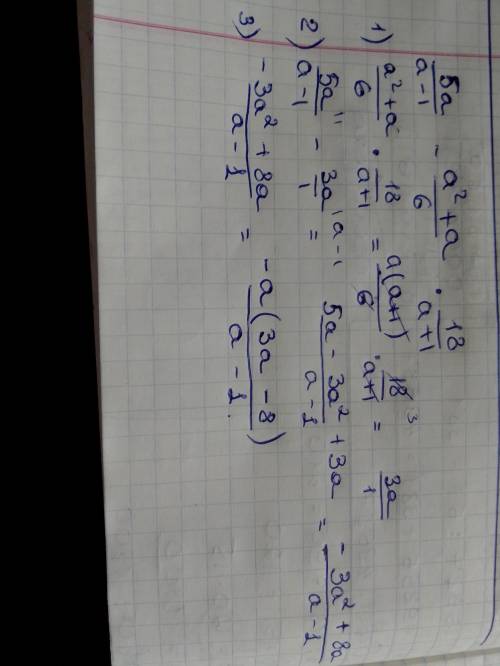 5a/(a-1) - (a²+a)/6 · 18/(a+1)
1) (a²+a)/6 · 18/(a+1) = a(a+1)/6 · 18/(a+1) ³ = 3a/1
2) 5a/(a-1) ¹¹ - 3a/1 ^(1a-1) = (5a - 3a² + 3a)/(a-1) = (-3a² + 8a)/(a-1)
3) (-3a² + 8a)/(a-1) = -a(3a - 8)/(a-1).